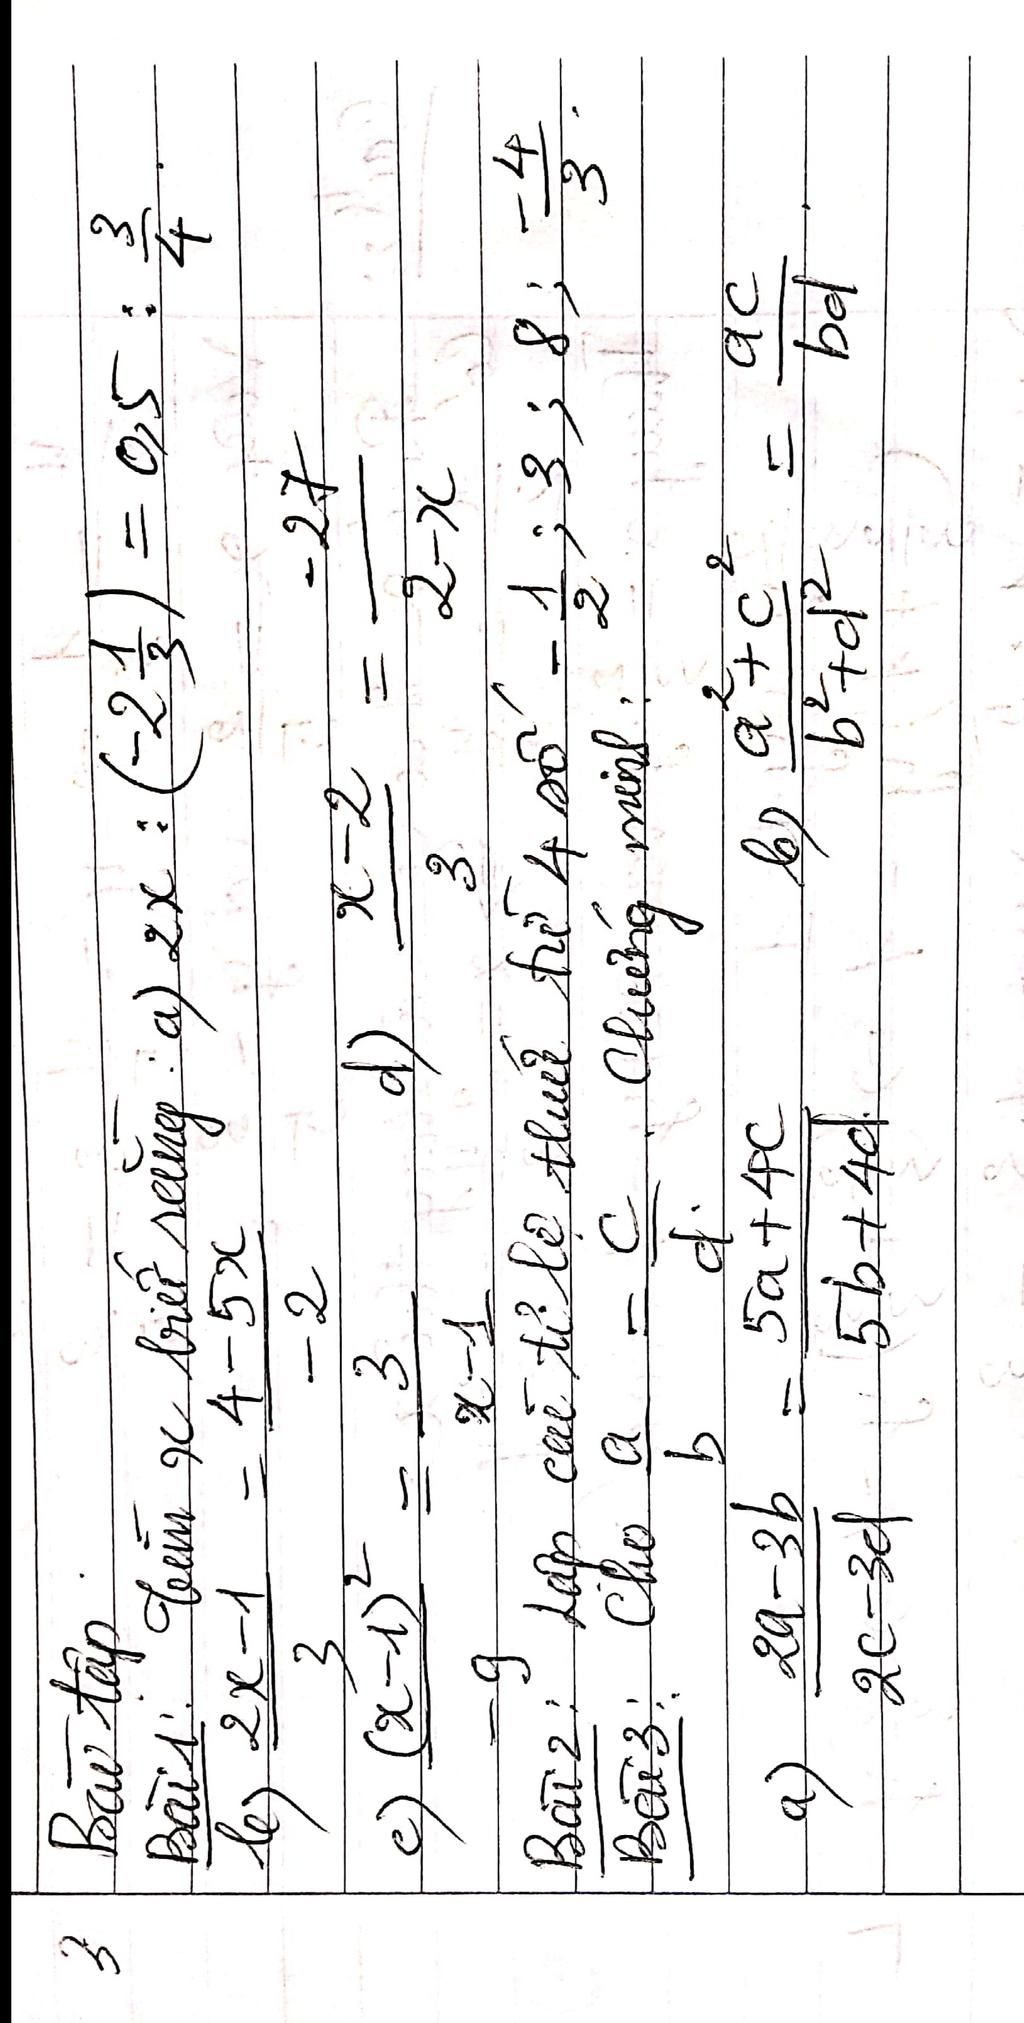 3
Bài tập
Bài 1: Tìm x biết rằng: a) 2x : (-2 1/3) = 0,5 : 3/4.
b) (2x-1)/3 = (4-5x)/-2
c) (x-1)²/-9 = 3/(x-1) d) (x-2)/3 = -27/(2-x)
Bài 2: Lập các tỉ lệ thức từ 4 số -1/2; 3; 8; -4/3.
Bài 3: Cho a/b = c/d. Chứng minh:
a) (2a-3b)/(2c-3d) = (5a+4c)/(5b+4d) b) (a²+c²)/(b²+d²) = ac/bd.